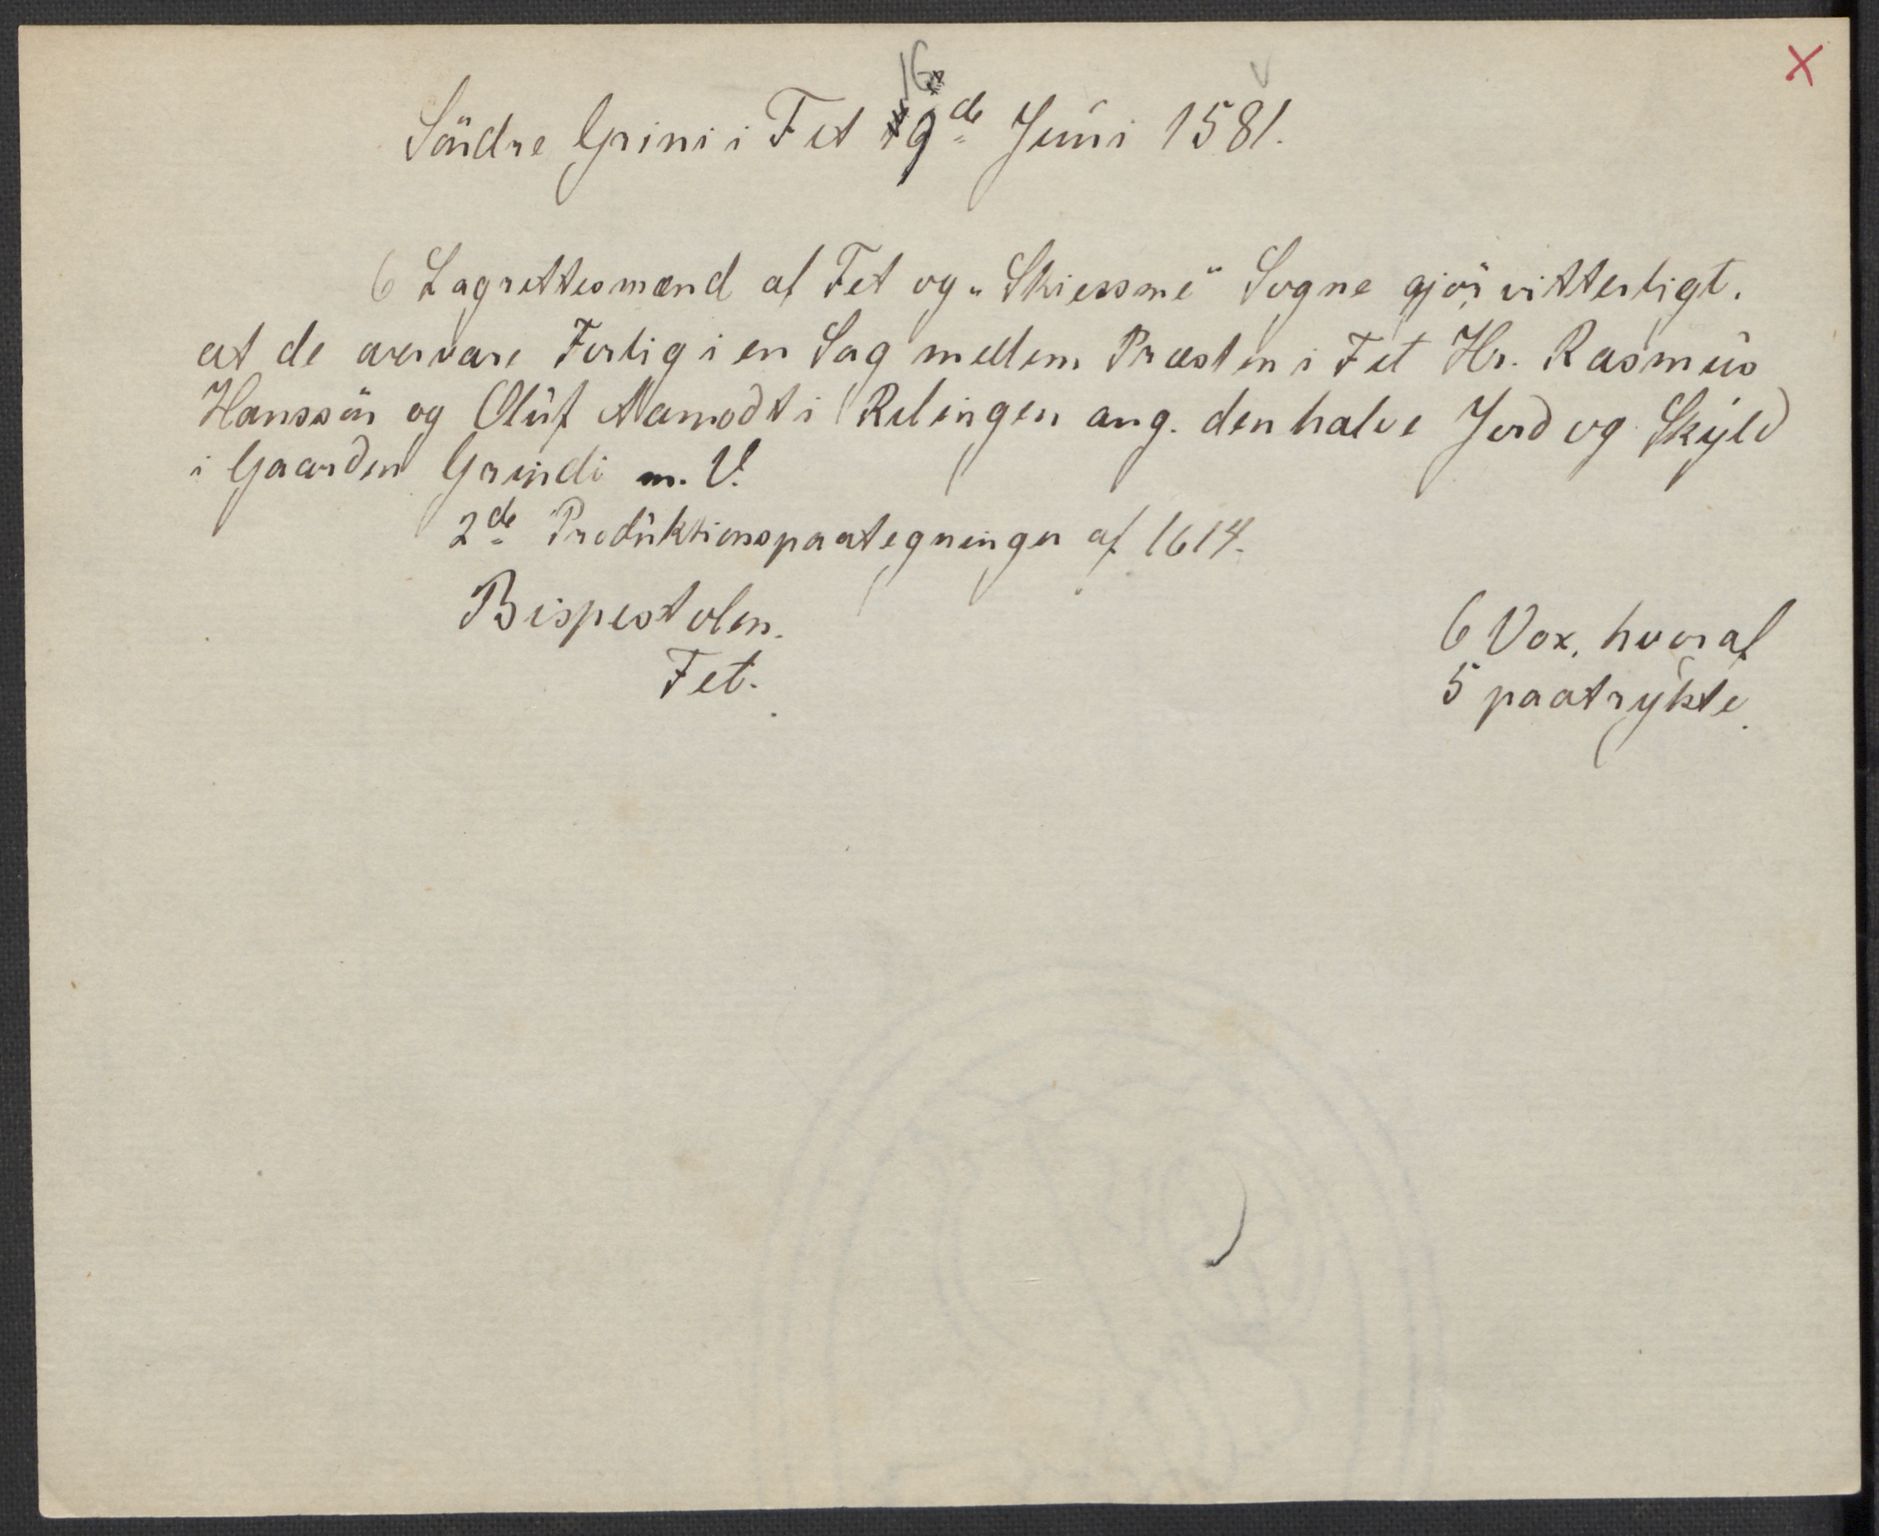 16
Söndre Grini i Fet 19de Juni 1581.
X
6 Lagrettesmænd af Fet og „Skiessme" Sogne gjör vitterligt,
at de overvare Forlig i en Sag mellem Præsten i Fet Hr. Rasmus
Hanssön og Oluf Aamodt i Relingen ang. den halve Jord og Skyld
i Gaarden Grindi m. V.
2de Produktionspaategninger af 1614.
Bispestolen.
Fet.
6 Vox, hvoraf
5 paatrykte.